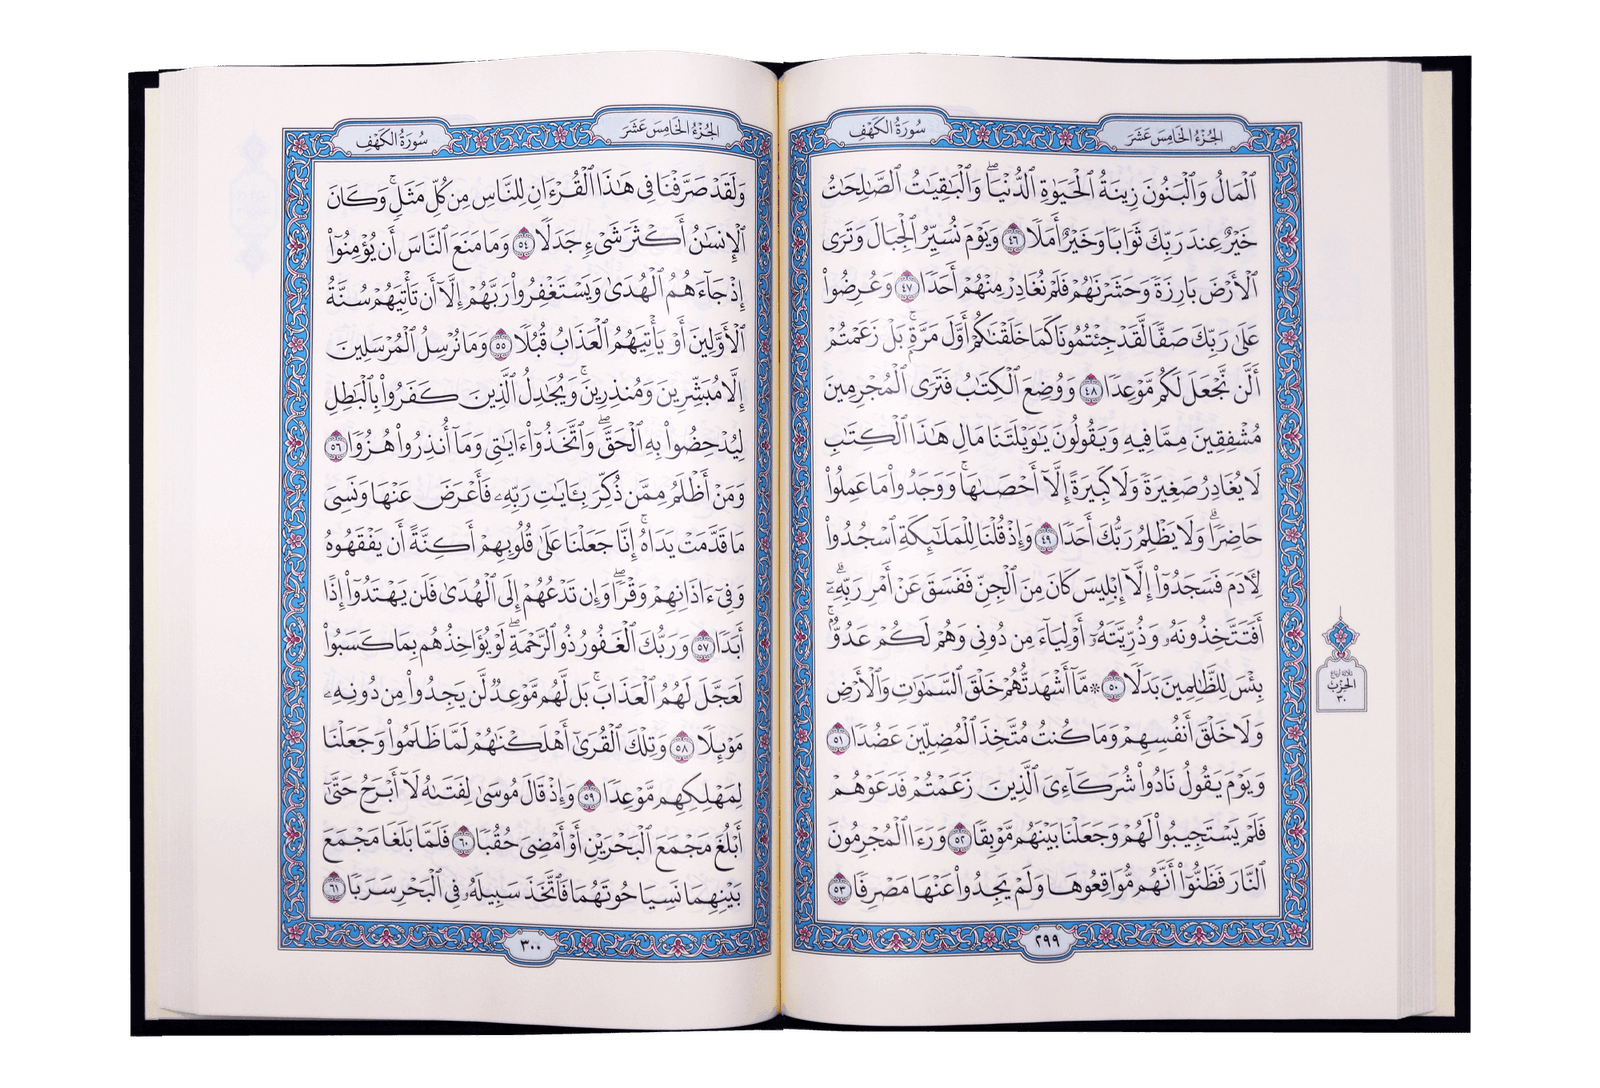 الجزء الخامس عشر
سورة الكهف
ٱلۡمَالُ وَٱلۡبَنُونَ زِينَةُ ٱلۡحَيَوٰةِ ٱلدُّنۡيَاۖ وَٱلۡبَٰقِيَٰتُ ٱلصَّٰلِحَٰتُ
خَيۡرٌ عِندَ رَبِّكَ ثَوَابٗا وَخَيۡرٌ أَمَلٗا ٤٦ وَيَوۡمَ نُسَيِّرُ ٱلۡجِبَالَ وَتَرَى
ٱلۡأَرۡضَ بَارِزَةٗ وَحَشَرۡنَٰهُمۡ فَلَمۡ نُغَادِرۡ مِنۡهُمۡ أَحَدٗا ٤٧ وَعُرِضُواْ
عَلَىٰ رَبِّكَ صَفّٗا لَّقَدۡ جِئۡتُمُونَا كَمَا خَلَقۡنَٰكُمۡ أَوَّلَ مَرَّةِۭۚ بَلۡ زَعَمۡتُمۡ
أَلَّن نَّجۡعَلَ لَكُم مَّوۡعِدٗا ٤٨ وَوُضِعَ ٱلۡكِتَٰبُ فَتَرَى ٱلۡمُجۡرِمِينَ
مُشۡفِقِينَ مِمَّا فِيهِ وَيَقُولُونَ يَٰوَيۡلَتَنَا مَالِ هَٰذَا ٱلۡكِتَٰبِ
لَا يُغَادِرُ صَغِيرَةٗ وَلَا كَبِيرَةً إِلَّآ أَحۡصَىٰهَاۚ وَوَجَدُواْ مَا عَمِلُواْ
حَاضِرٗاۗ وَلَا يَظۡلِمُ رَبُّكَ أَحَدٗا ٤٩ وَإِذۡ قُلۡنَا لِلۡمَلَٰٓئِكَةِ ٱسۡجُدُواْ
لِأٓدَمَ فَسَجَدُوٓاْ إِلَّآ إِبۡلِيسَ كَانَ مِنَ ٱلۡجِنِّ فَفَسَقَ عَنۡ أَمۡرِ رَبِّهِۦٓۗ
أَفَتَتَّخِذُونَهُۥ وَذُرِّيَّتَهُۥٓ أَوۡلِيَآءَ مِن دُونِي وَهُمۡ لَكُمۡ عَدُوُّۢۚ
بِئۡسَ لِلظَّٰلِمِينَ بَدَلٗا ٥٠ ۞ مَّآ أَشۡهَدتُّهُمۡ خَلۡقَ ٱلسَّمَٰوَٰتِ وَٱلۡأَرۡضِ
وَلَا خَلۡقَ أَنفُسِهِمۡ وَمَا كُنتُ مُتَّخِذَ ٱلۡمُضِلِّينَ عَضُدٗا ٥١
وَيَوۡمَ يَقُولُ نَادُواْ شُرَكَآءِيَ ٱلَّذِينَ زَعَمۡتُمۡ فَدَعَوۡهُمۡ
فَلَمۡ يَسۡتَجِيبُواْ لَهُمۡ وَجَعَلۡنَا بَيۡنَهُم مَّوۡبِقٗا ٥٢ وَرَءَا ٱلۡمُجۡرِمُونَ
ٱلنَّارَ فَظَنُّوٓاْ أَنَّهُم مُّوَاقِعُوهَا وَلَمۡ يَجِدُواْ عَنۡهَا مَصۡرِفٗا ٥٣
٢٩٩
ثلاثة أرباع
الحزب
٣٠
الجزء الخامس عشر
سورة الكهف
وَلَقَدۡ صَرَّفۡنَا فِي هَٰذَا ٱلۡقُرۡءَانِ لِلنَّاسِ مِن كُلِّ مَثَلٖۚ وَكَانَ
ٱلۡإِنسَٰنُ أَكۡثَرَ شَيۡءٖ جَدَلٗا ٥٤ وَمَا مَنَعَ ٱلنَّاسَ أَن يُؤۡمِنُوٓاْ
إِذۡ جَآءَهُمُ ٱلۡهُدَىٰ وَيَسۡتَغۡفِرُواْ رَبَّهُمۡ إِلَّآ أَن تَأۡتِيَهُمۡ سُنَّةُ
ٱلۡأَوَّلِينَ أَوۡ يَأۡتِيَهُمُ ٱلۡعَذَابُ قُبُلٗا ٥٥ وَمَا نُرۡسِلُ ٱلۡمُرۡسَلِينَ
إِلَّا مُبَشِّرِينَ وَمُنذِرِينَۚ وَيُجَٰدِلُ ٱلَّذِينَ كَفَرُواْ بِٱلۡبَٰطِلِ
لِيُدۡحِضُواْ بِهِ ٱلۡحَقَّۖ وَٱتَّخَذُوٓاْ ءَايَٰتِي وَمَآ أُنذِرُواْ هُزُوٗا ٥٦
وَمَنۡ أَظۡلَمُ مِمَّن ذُكِّرَ بِـَٔايَٰتِ رَبِّهِۦ فَأَعۡرَضَ عَنۡهَا وَنَسِيَ
مَا قَدَّمَتۡ يَدَاهُۚ إِنَّا جَعَلۡنَا عَلَىٰ قُلُوبِهِمۡ أَكِنَّةً أَن يَفۡقَهُوهُ
وَفِيٓ ءَاذَانِهِمۡ وَقۡرٗاۖ وَإِن تَدۡعُهُمۡ إِلَى ٱلۡهُدَىٰ فَلَن يَهۡتَدُوٓاْ إِذًا
أَبَدٗا ٥٧ وَرَبُّكَ ٱلۡغَفُورُ ذُو ٱلرَّحۡمَةِۖ لَوۡ يُؤَاخِذُهُم بِمَا كَسَبُواْ
لَعَجَّلَ لَهُمُ ٱلۡعَذَابَۚ بَل لَّهُم مَّوۡعِدٞ لَّن يَجِدُواْ مِن دُونِهِۦ
مَوۡئِلٗا ٥٨ وَتِلۡكَ ٱلۡقُرَىٰٓ أَهۡلَكۡنَٰهُمۡ لَمَّا ظَلَمُواْ وَجَعَلۡنَا
لِمَهۡلِكِهِم مَّوۡعِدٗا ٥٩ وَإِذۡ قَالَ مُوسَىٰ لِفَتَىٰهُ لَآ أَبۡرَحُ حَتَّىٰٓ
أَبۡلُغَ مَجۡمَعَ ٱلۡبَحۡرَيۡنِ أَوۡ أَمۡضِيَ حُقُبٗا ٦٠ فَلَمَّا بَلَغَا مَجۡمَعَ
بَيۡنِهِمَا نَسِيَا حُوتَهُمَا فَٱتَّخَذَ سَبِيلَهُۥ فِي ٱلۡبَحۡرِ سَرَبٗا ٦١
٣٠٠